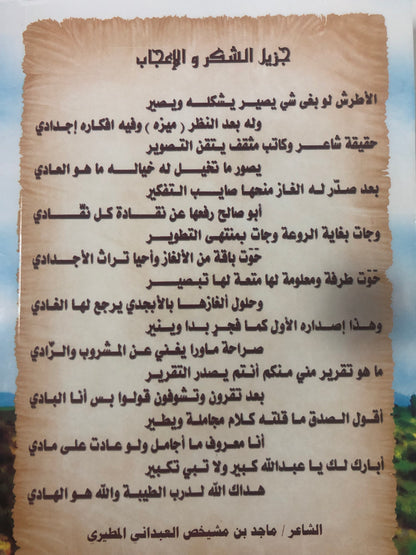 جزيل الشكر و الإعجاب
الأطرش لو بغى شي يصير يشكله ويصير
وله بعد النظر ( ميزه ) وفيه افكاره إجدادي
حقيقة شاعر وكاتب مثقف يتقن التصوير
يصور ما تخيل له خياله ما هو العادي
بعد صدّر له الغاز منحها صايب التفكير
أبو صالح رفعها عن نقادة كل نقّادي
وجات بغاية الروعة وجات بمنتهى التطوير
حَوَت باقة من الألغاز وأحيا تراث الأجدادي
حَوَت طرفة ومعلومة لها متعة لها تبصير
وحلول ألغازها بالأبجدي يرجع لها الغادي
وهذا إصداره الأول كما فجر بدا وينير
صراحة ماورا يغني عن المشروب والزّادي
ما هو تقرير مني منكم أنتم يصدر التقرير
بعد تقرون وتشوفون قولوا بس أنا البادي
أقول الصدق ما قلته كلام مجاملة ويطير
أنا معروف ما أجامل ولو عادت على مادي
أبارك لك يا عبدالله كبير ولا تبي تكبير
هداك الله لدرب الطيبة والله هو الهادي
الشاعر / ماجد بن مشيخص العبداني المطيري